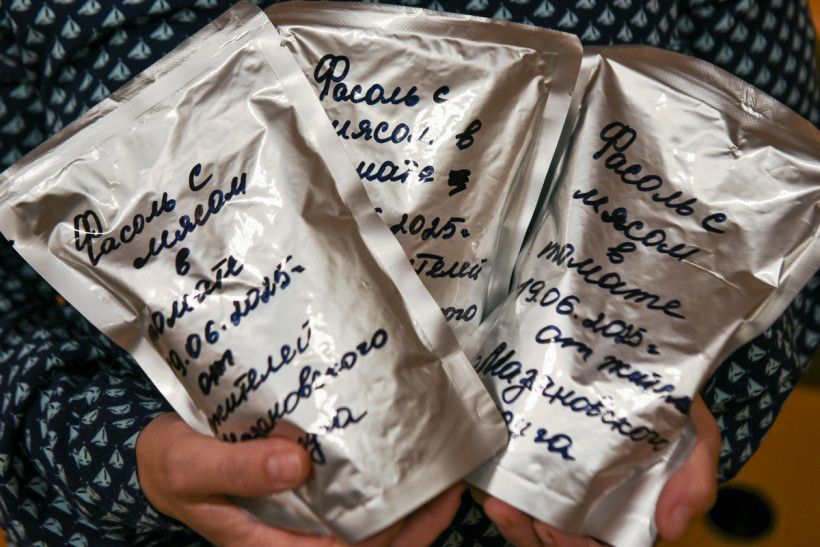 Фасоль с
мясом
в
томате
19.06.2025г
от
жителей
Мазановского
Фасоль с
мясом в
мате
2025г
ителей
ого
Фасоль с
мясом
в
томате
19.06.2025г
от жителе
Мазановского